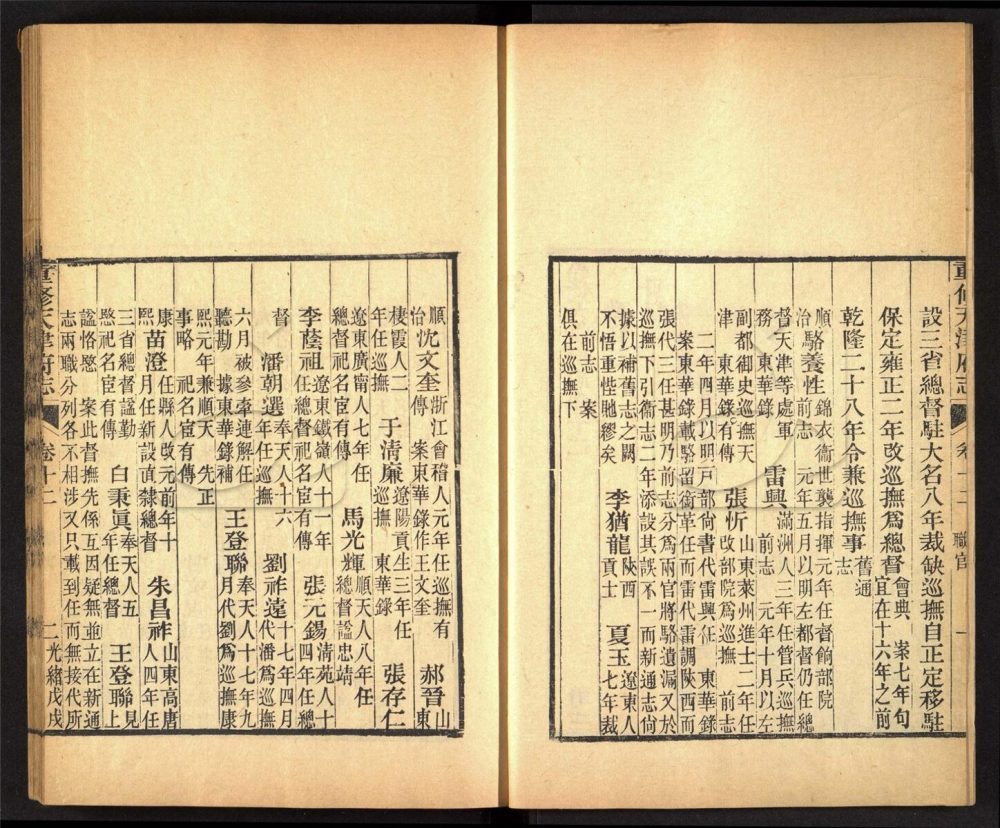 重修天津府志 卷十二 職官 一
設三省總督駐大名八年裁缺巡撫自正定移駐
保定雍正二年改巡撫爲總督會典 案七年句宜在十六年之前
乾隆二十八年令兼巡撫事舊通志
順治駱養性錦衣衛世襲指揮元年任督餉部院前志 元年五月以明左都督仍任總
督天津等處軍務 東華錄雷興滿洲人三年任管兵巡撫前志 元年十月以左
副都御史巡撫天津 東華錄有傳張忻山東萊州進士二年任東華錄改部院爲巡撫 前志
二年四月以明戸部尙書代雷興任 東華錄案東華錄載駱留衛革任而雷代雷調陜西而
張代三任甚明乃前志分爲兩官將駱遺漏又於巡撫下引衛志二年添設其誤不一而新通志尙
據以補舊志之闕不悟重悂貤繆矣李猶龍陜西貢士夏玉遼東人七年裁
前志 案俱在巡撫下
順治沈文奎浙江會稽人元年任巡撫有傳 案東華錄作王文奎郝晉山東
棲霞人二年任巡撫于清廉遼陽貢生三年任巡撫 東華錄張存仁
遼東廣甯人七年任總督祀名宦有傳馬光輝順天人八年任總督諡忠靖
李蔭祖遼東鐵嶺人十一年任總督祀名宦有傳張元錫清苑人十四年任總
督潘朝選奉天人十六年任巡撫劉祚遠十七年四月代潘爲巡撫
六月被參牽連解任聽勘 據東華錄補王登聯奉天人十七年九月代劉爲巡撫康
熙元年兼順天 先正事略 祀名宦有傳
康熙苗澄任縣人改元前年十月任新設直隸總督朱昌祚山東高唐人四年任
三省總督諡勤愍祀名宦有傳白秉眞奉天人五年任總督王登聯見上
諡恪愍 案此督撫先係互因疑無並立在新通志兩職分列各不相涉又只載到任而無接代所
重修天津府志 卷十二 二 光緒戊戌